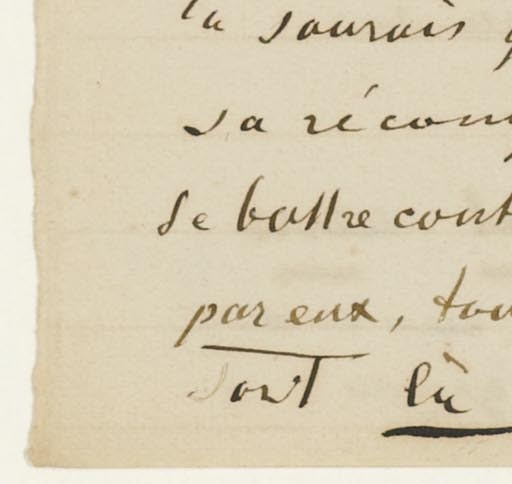 la saurais
sa récom
se battre cont
par eux, tou
sont là